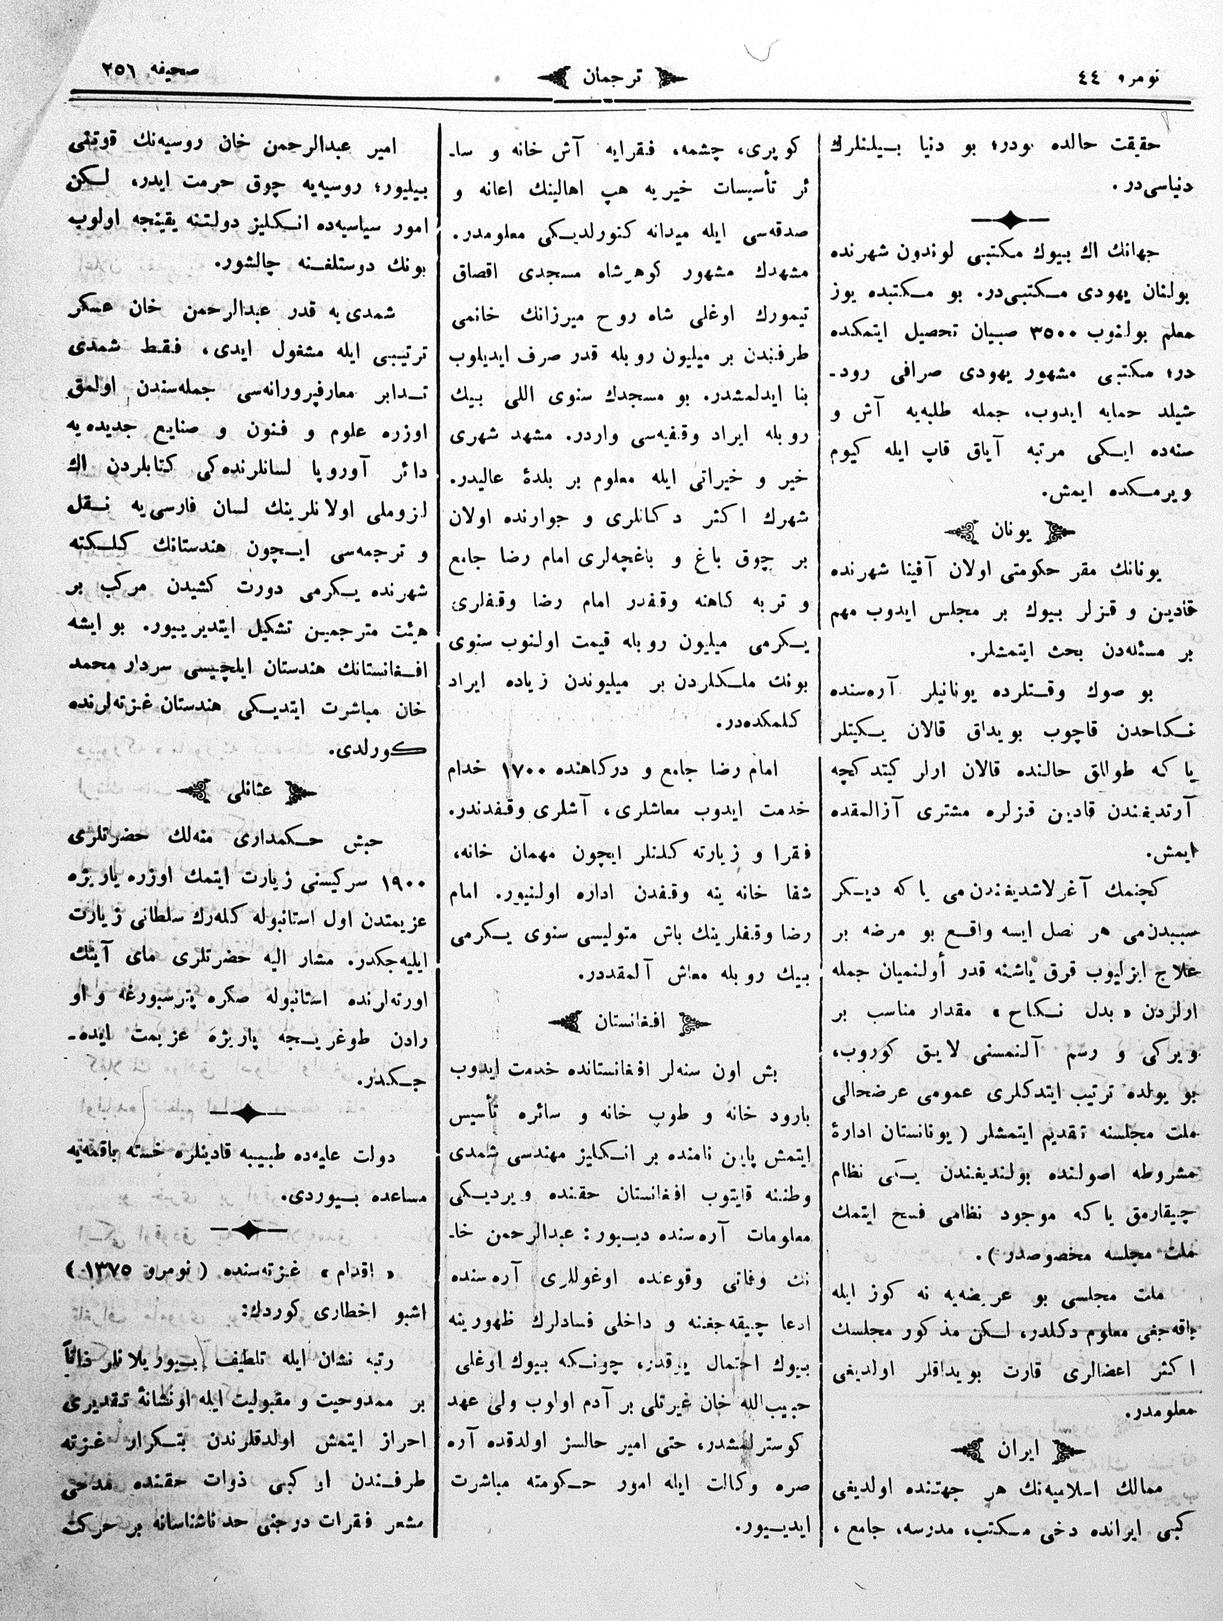 نومرو ٤٤
ترجمان
صحیفه ٢٥٦
حقیقت حالده بودر؛ بو دنیا بیلنلرك
دنیاسی‌در.
جهانك اك بیوك مكتبی لوندون شهرنده
بولنان یهودی مكتبی‌در. بو مكتبده یوز
معلم بولنوب ٣٥٠٠ صبیان تحصیل ایتمكده
در؛ مكتبی مشهور یهودی صرافی رود-
شیلد حمایه ایدوب، جمله طلبه‌یه آش و
سنه‌ده ایكی مرتبه آیاق قاب ایله كیوم
ویرمكده ایمش.
یونان
یونانك مقر حكومتی اولان آفینا شهرنده
قادین و قزلر بیوك بر مجلس ایدوب مهم
بر مسئله‌دن بحث ایتمشلر.
بو صوك وقتلرده یونانیلر آره‌سنده
نكاحدن قاچوب بویداق قالان یكیتلر
یا كه طوللق حالنده قالان ارلر كیتدكچه
آرتدیغندن قادین قزلره مشتری آزالمقده
ایمش.
كچنمك آغرلاشدیغندن‌می یا كه دیكر
سببدن‌می هر نصل ایسه واقع بو مرضه بر
علاج ایزلیوب قرق یاشنه قدر أولنمیان جمله
ارلردن « بدل نكاح » مقدار مناسب بر
ویركی و رسم آلنمسنی لایق كوروب،
بو یولده ترتیب ایتدكلری عمومی عرضحالی
ملت مجلسنه تقدیم ایتمشلر ( یونانستان ادارۀ
مشروطه اصولنده بولندیغندن یكی نظام
چیقارمق یا كه موجود نظامی فسخ ایتمك
ملت مجلسه مخصوصدر ).
ملت مجلسی بو عریضه‌یه نه كوز ایله
باقه‌جغی معلوم دكلدر، لكن مذكور مجلسك
اكثر اعضالری قارت بویداقلر اولدیغی
معلومدر.
ایران
ممالك اسلامیه‌نك هر جهتنده اولدیغی
كبی ایرانده دخی مكتب، مدرسه، جامع،
كوپری، چشمه، فقرایه آش خانه و سا-
ئر تأسیسات خیریه هپ اهالینك اعانه و
صدقه‌سی ایله میدانه كتورلدیكی معلومدر.
مشهدك مشهور كوهرشاه مسجدی اقصاق
تیمورك اوغلی شاه روح میرزانك خانمی
طرفندن بر میلیون روبله قدر صرف ایدیلوب
بنا ایدلمشدر. بو مسجدك سنوی اللی بیك
روبله ایراد وقفیه‌سی واردر. مشهد شهری
خیر و خیراتی ایله معلوم بر بلدۀ عالیدر.
شهرك اكثر دكانلری و جوارنده اولان
بر چوق باغ و باغچه‌لری امام رضا جامع
و تربه كاهنه وقفدر امام رضا وقفلری
یكرمی میلیون روبله قیمت اولنوب سنوی
بونك ملكلردن بر میلیوندن زیاده ایراد
كلمكده‌در.
امام رضا جامع و دركاهنده ١٧٠٠ خدام
خدمت ایدوب معاشلری، آشلری وقفدندر.
فقرا و زیارته كلنلر ایچون مهمان خانه،
شفا خانه ینه وقفدن اداره اولنیور. امام
رضا وقفلرینك باش متولیسی سنوی یكرمی
بیك روبله معاش آلمقددر.
افغانستان
بش اون سنه‌لر افغانستانده خدمت ایدوب
بارود خانه و طوپ خانه و سائره تأسیس
ایتمش پاین نامنده بر انكلیز مهندسی شمدی
وطننه قایتوب افغانستان حقنده ویردیكی
معلومات آره‌سنده دییور: عبدالرحمن خا-
نك وفاتی وقوعنده اوغوللری آره‌سنده
ادعا چیقه‌جغنه و داخلی فسادلرك ظهورینه
بیوك احتمال یوقدر، چونكه بیوك اوغلی
حبیب‌الله خان غیرتلی بر آدم اولوب ولی عهد
كوسترلمشدر، حتی امیر حالسز اولدقده آره
صره وكالت ایله امور حكومته مباشرت
ایدییور.
امیر عبدالرحمن خان روسیه‌نك قوتنی
بیلیور؛ روسیه‌یه چوق حرمت ایدر، لكن
امور سیاسیه‌ده انكلیز دولتنه یقینجه اولوب
بونك دوستلغنه چالشور.
شمدی‌یه قدر عبدالرحمن خان عسكر
ترتیبی ایله مشغول ایدی، فقط شمدی
تدابر معارفپرورانه‌سی جمله‌سندن اولمق
اوزره علوم و فنون و صنایع جدیده‌یه
دائر آوروپا لسانلرنده‌كی كتابلردن اك
لزوملی اولانلرینك لسان فارسی‌یه نقل
و ترجمه‌سی ایچون هندستانك كلكته
شهرنده یكرمی دورت كشیدن مركب بر
هیئت مترجمین تشكیل ایتدیرییور. بو ایشه
افغانستانك هندستان ایلچیسی سردار محمد
خان مباشرت ایتدیكی هندستان غزته‌لرنده
كورلدی.
عثمانلی
حبش حكمداری منه‌لك حضرتلری
١٩٠٠ سركیسنی زیارت ایتمك اوزره پاریژه
عزیمتدن اول استانبوله كله‌رك سلطانی زیارت
ایلیه‌جكدر. مشار الیه حضرتلری مای آینك
اورته‌لرنده استانبوله صكره پترسبورغه و او
رادن طوغریجه پاریژه عزیمت ایده-
جكدر.
دولت علیه‌ده طبیبه قادینلره خسته باقمه‌یه
مساعده بیوردی.
« اقدام » غزته‌سنده ( نومرو ١٣٧٥ )
اشبو اخطاری كوردك:
رتبه نشان ایله تلطیف بیوریلانلر ذاتاً
بر ممدوحیت و مقبولیت ایله او نشانۀ تقدیری
احراز ایتمش اولدقلرندن بتكرار غزته
طرفندن او كبی ذوات حقنده مدحی
مشعر فقرات درجنی حدناشناسانه بر حركت